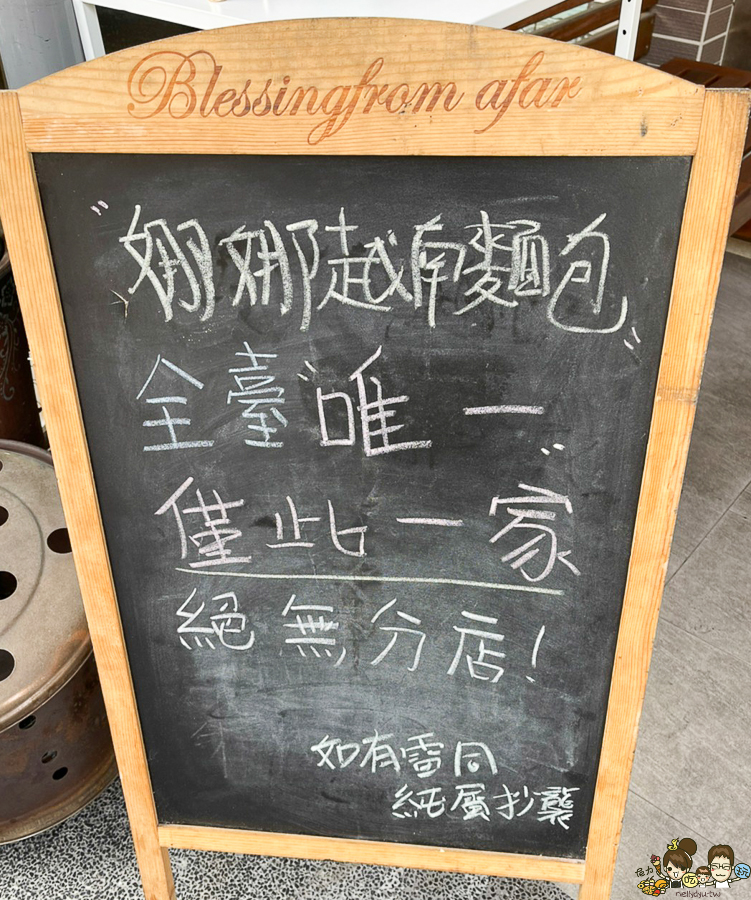 Blessing from afar
"娜娜越南麵包"
全臺"唯一"
僅此一家
絕無分店!
如有雷同
純屬抄襲
nellydyu.tw